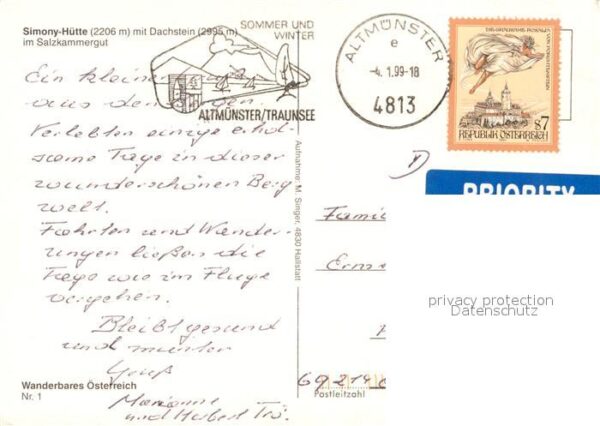 Simony-Hütte (2206 m) mit Dachstein (2995 m)
im Salzkammergut
SOMMER UND
WINTER
ALTMÜNSTER/TRAUNSEE
ALTMÜNSTER
e
-4. 1.99-18
4813
S7
REPUBLIK ÖSTERREICH
PRIORITY
D
Ein kleiner
aus den
Verlebten einige erhol-
same Tage in dieser
wunderschönen Berg
welt.
Fahrten und Wander-
ungen ließen die
Tage wie im Fluge
vergehen.
Bleibt gesund
und munter
Gruß
Marianne
und Herbert
Aufnahme: M. Singer, 4830 Hallstatt
Wanderbares Österreich
Nr. 1
69214
Postleitzahl
privacy protection
Datenschutz